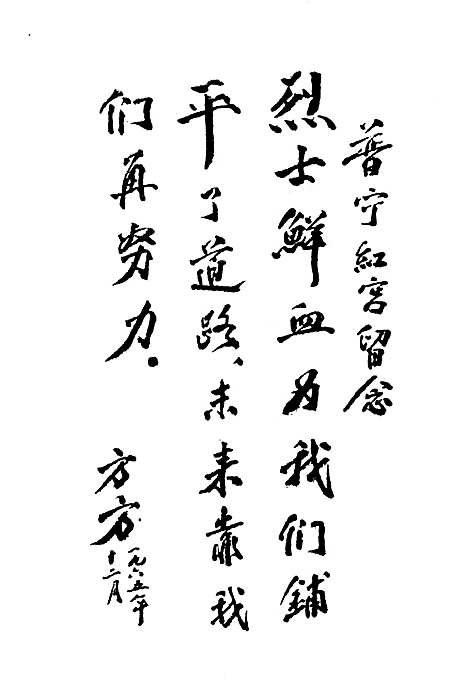 普宁红宫留念
烈士鲜血为我们铺
平了道路、未来靠我
们再努力.
方方
一九六五年
十二月